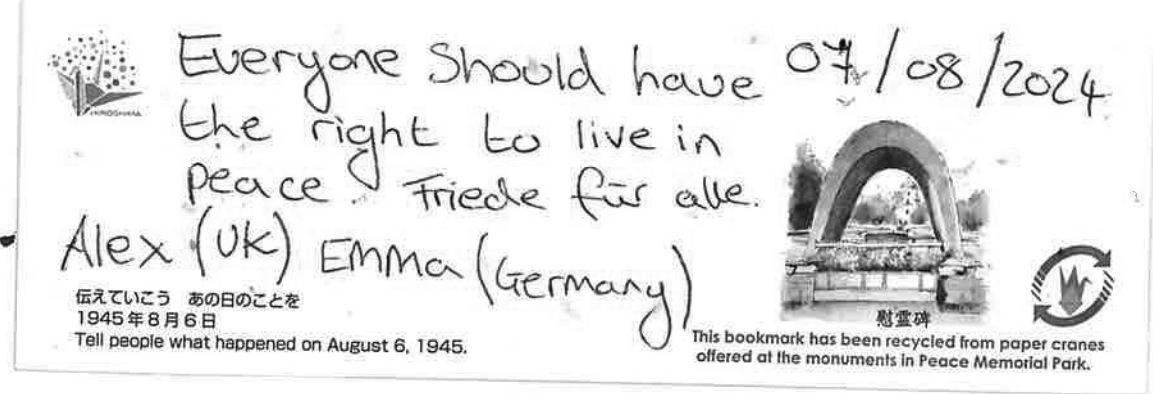 Everyone should have
07/08/2024
the right to live in
peace. Friede für alle.
Alex (UK) Emma (Germany)
HIROSHIMA
伝えていこう あの日のことを
1945年8月6日
Tell people what happened on August 6, 1945.
慰霊碑
This bookmark has been recycled from paper cranes
offered at the monuments in Peace Memorial Park.